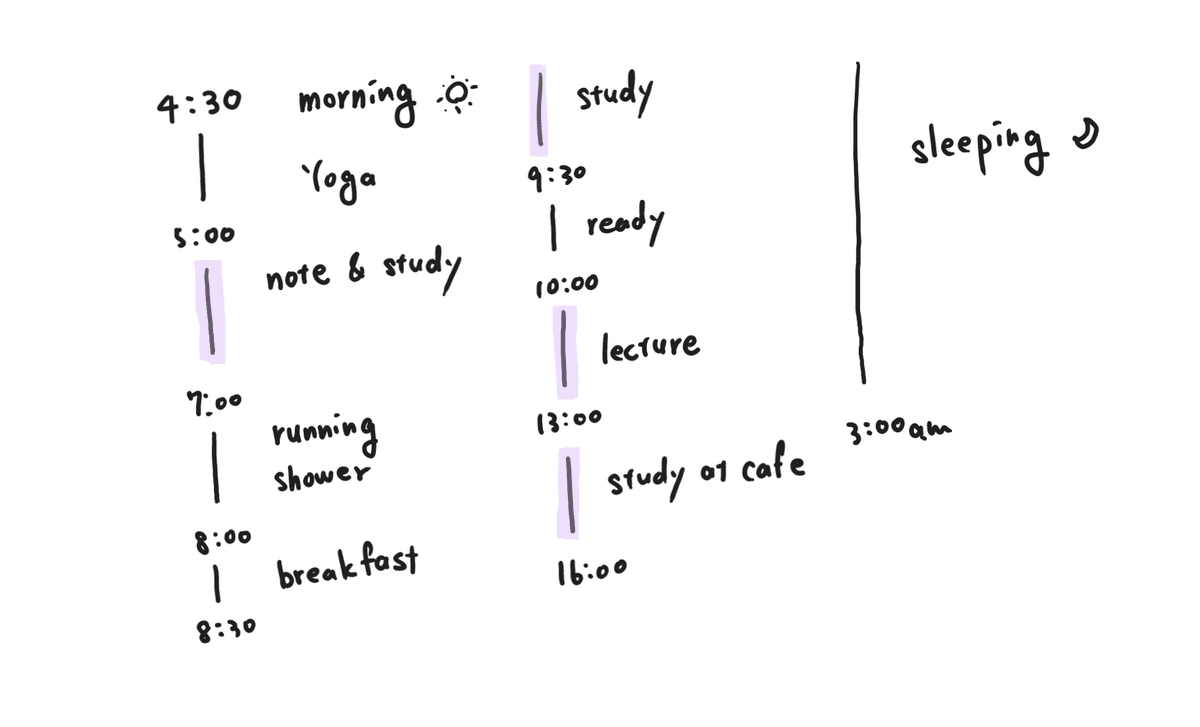 4:30 morning
Yoga
5:00
note & study
7:00
running
shower
8:00
breakfast
8:30
study
9:30
ready
10:00
lecture
13:00
study at cafe
16:00
sleeping
3:00am